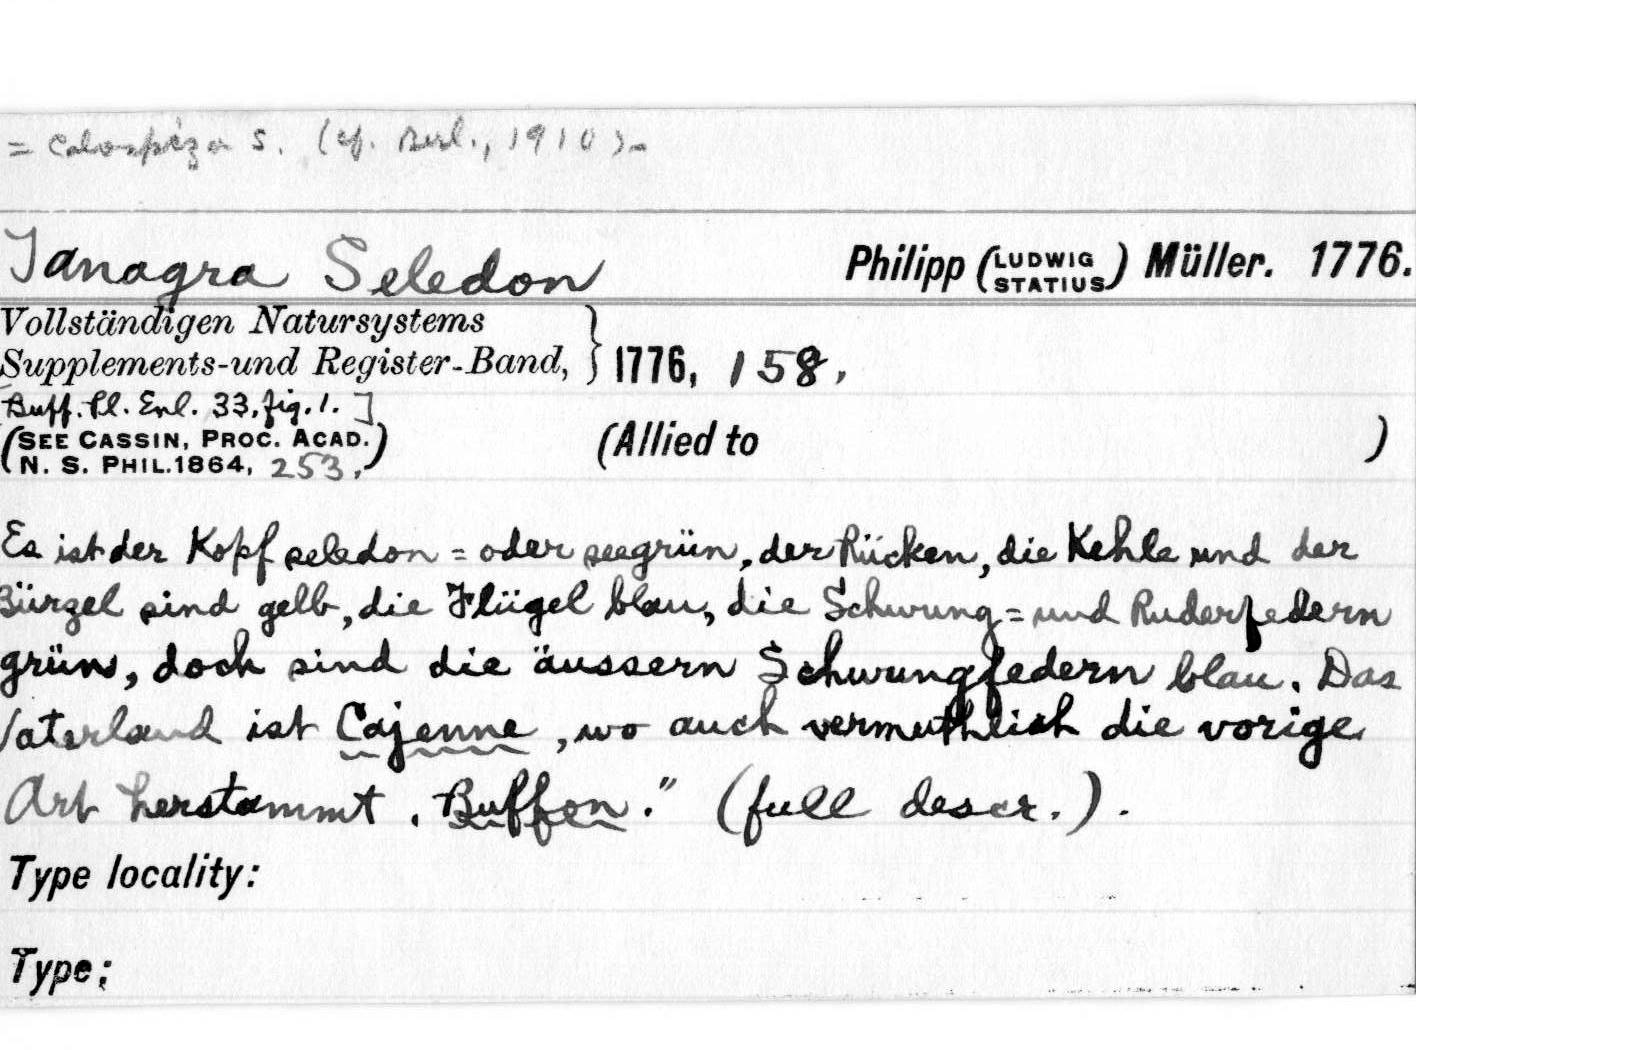 = Calospiza s. (cf. Berl., 1910).
Tanagra Seledon
Philipp (LUDWIG STATIUS) Müller. 1776.
Vollständigen Natursystems
Supplements-und Register-Band, } 1776, 158.
[Buff. Pl. Enl. 33, fig. 1.]
(SEE CASSIN, PROC. ACAD.
N. S. PHIL. 1864, 253.)
(Allied to )
Es ist der Kopf seledon = oder seegrün, der Rücken, die Kehle und der
Bürzel sind gelb, die Flügel blau, die Schwung = und Ruderfedern
grün, doch sind die äussern Schwungfedern blau. Das
Vaterland ist Cajenne, wo auch vermuthlich die vorige
Art herstammt. Buffon." (full descr.).
Type locality:
Type: